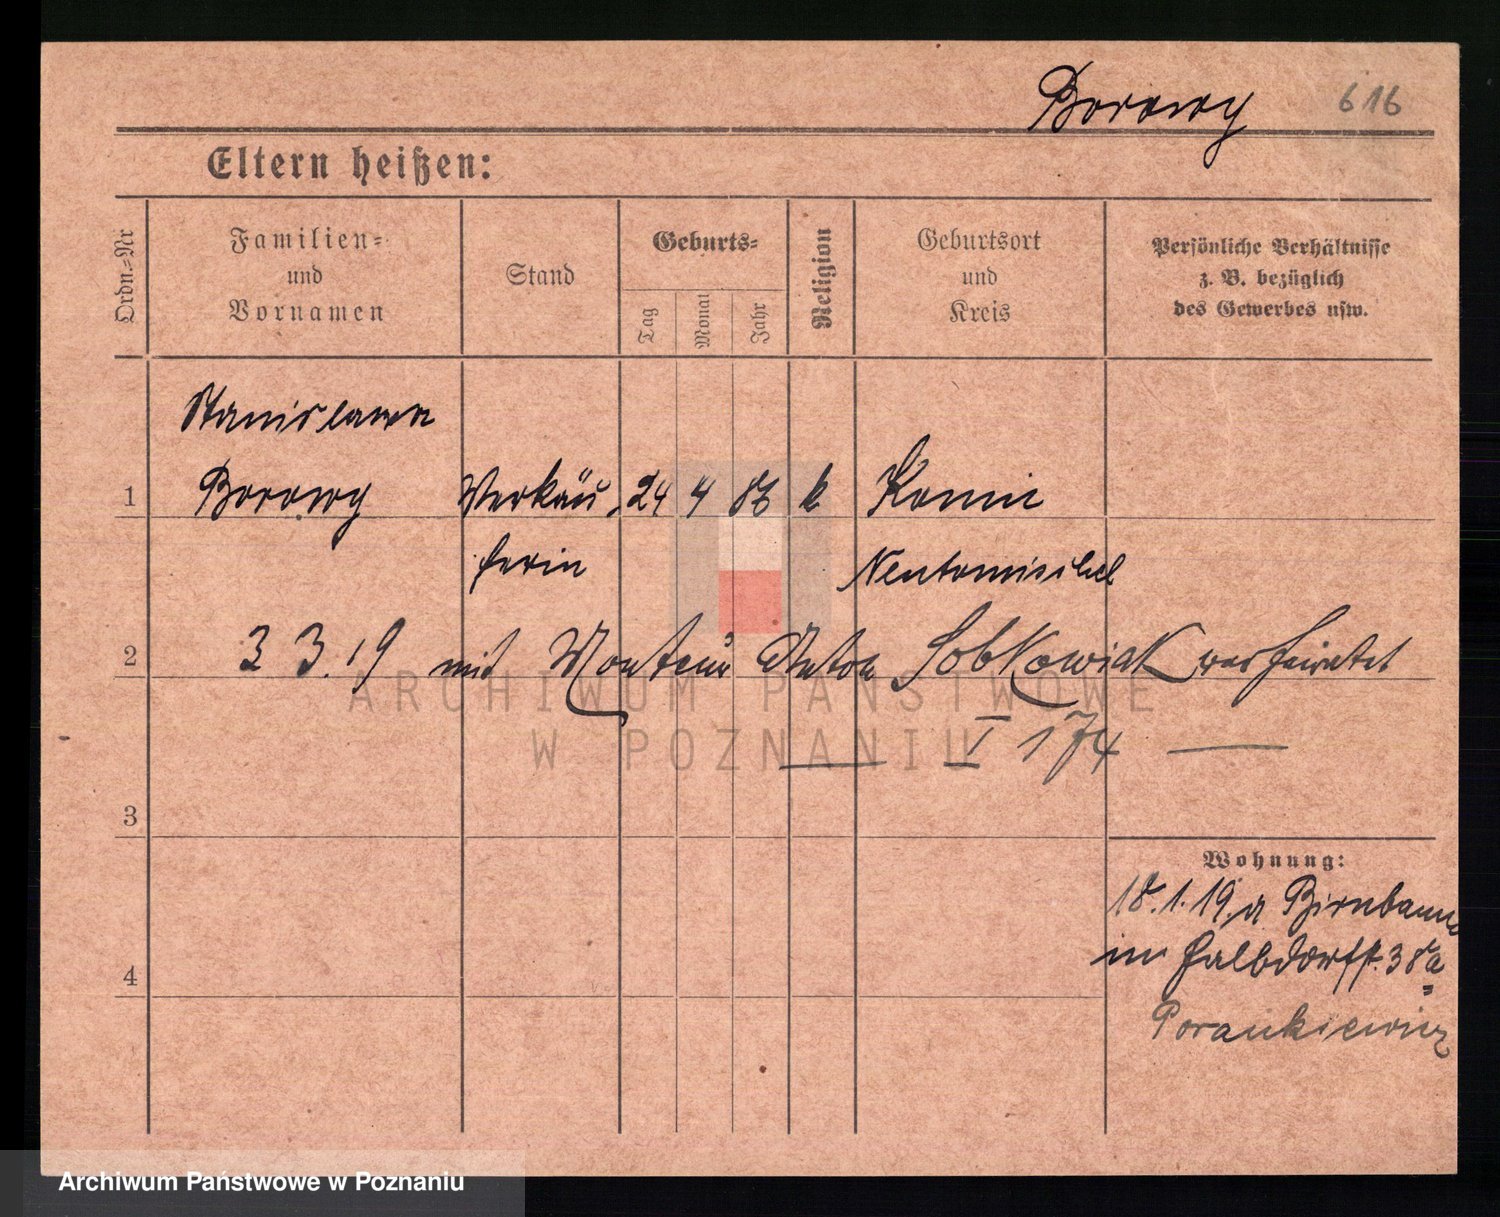 Borowy 616
Eltern heißen:
Ordn.=Nr
Familien=
und
Vornamen
Stand
Geburts=
Tag
Monat
Jahr
Religion
Geburtsort
und
Kreis
Persönliche Verhältnisse
z. B. bezüglich
des Gewerbes usw.
Stanislawa
1 Borowy Verkäu 24 4 k Komin
ferin Neutomischel
2 3 3. 19 mit Monteur Anton Sobkowiak verheiratet
I 174
3
Wohnung:
18.1.19. a Birnbaum
im Halbdorfst. 38a
4
Porankiewicz
ARCHIWUM PAŃSTWOWE
W POZNANIU
Archiwum Państwowe w Poznaniu